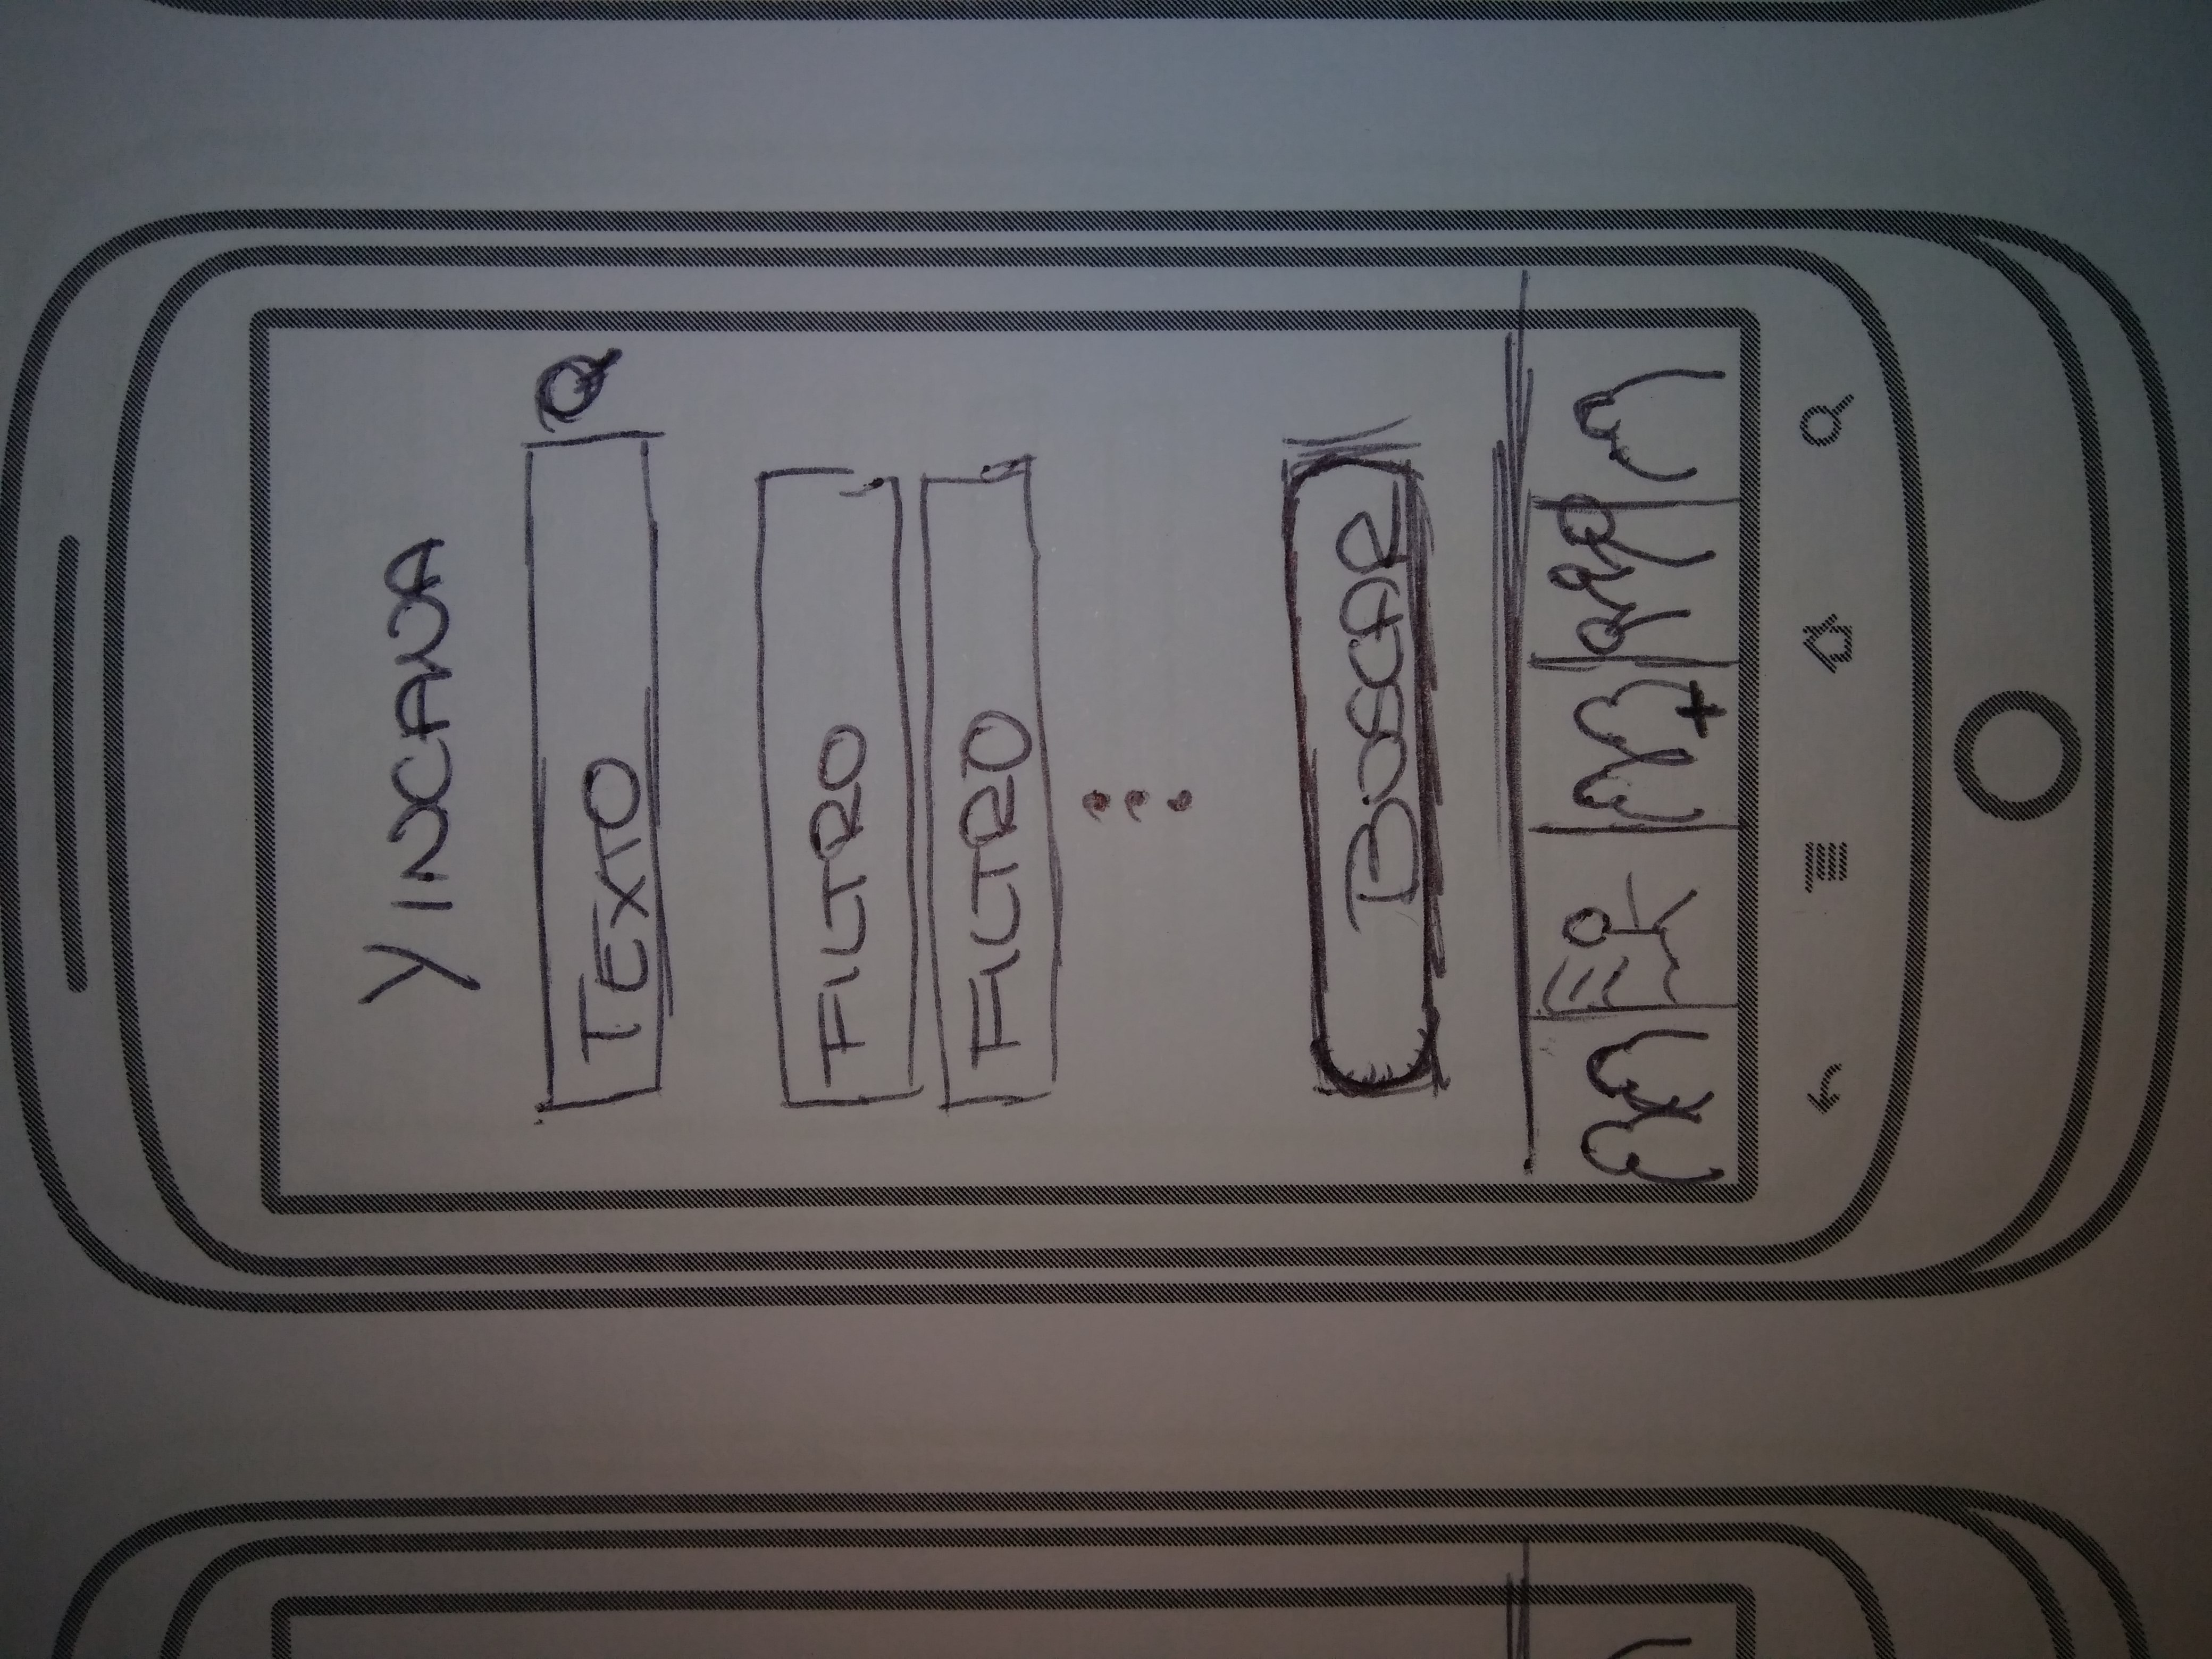 YINCANA
TEXTO
FILTRO
FILTRO
BUSCAR